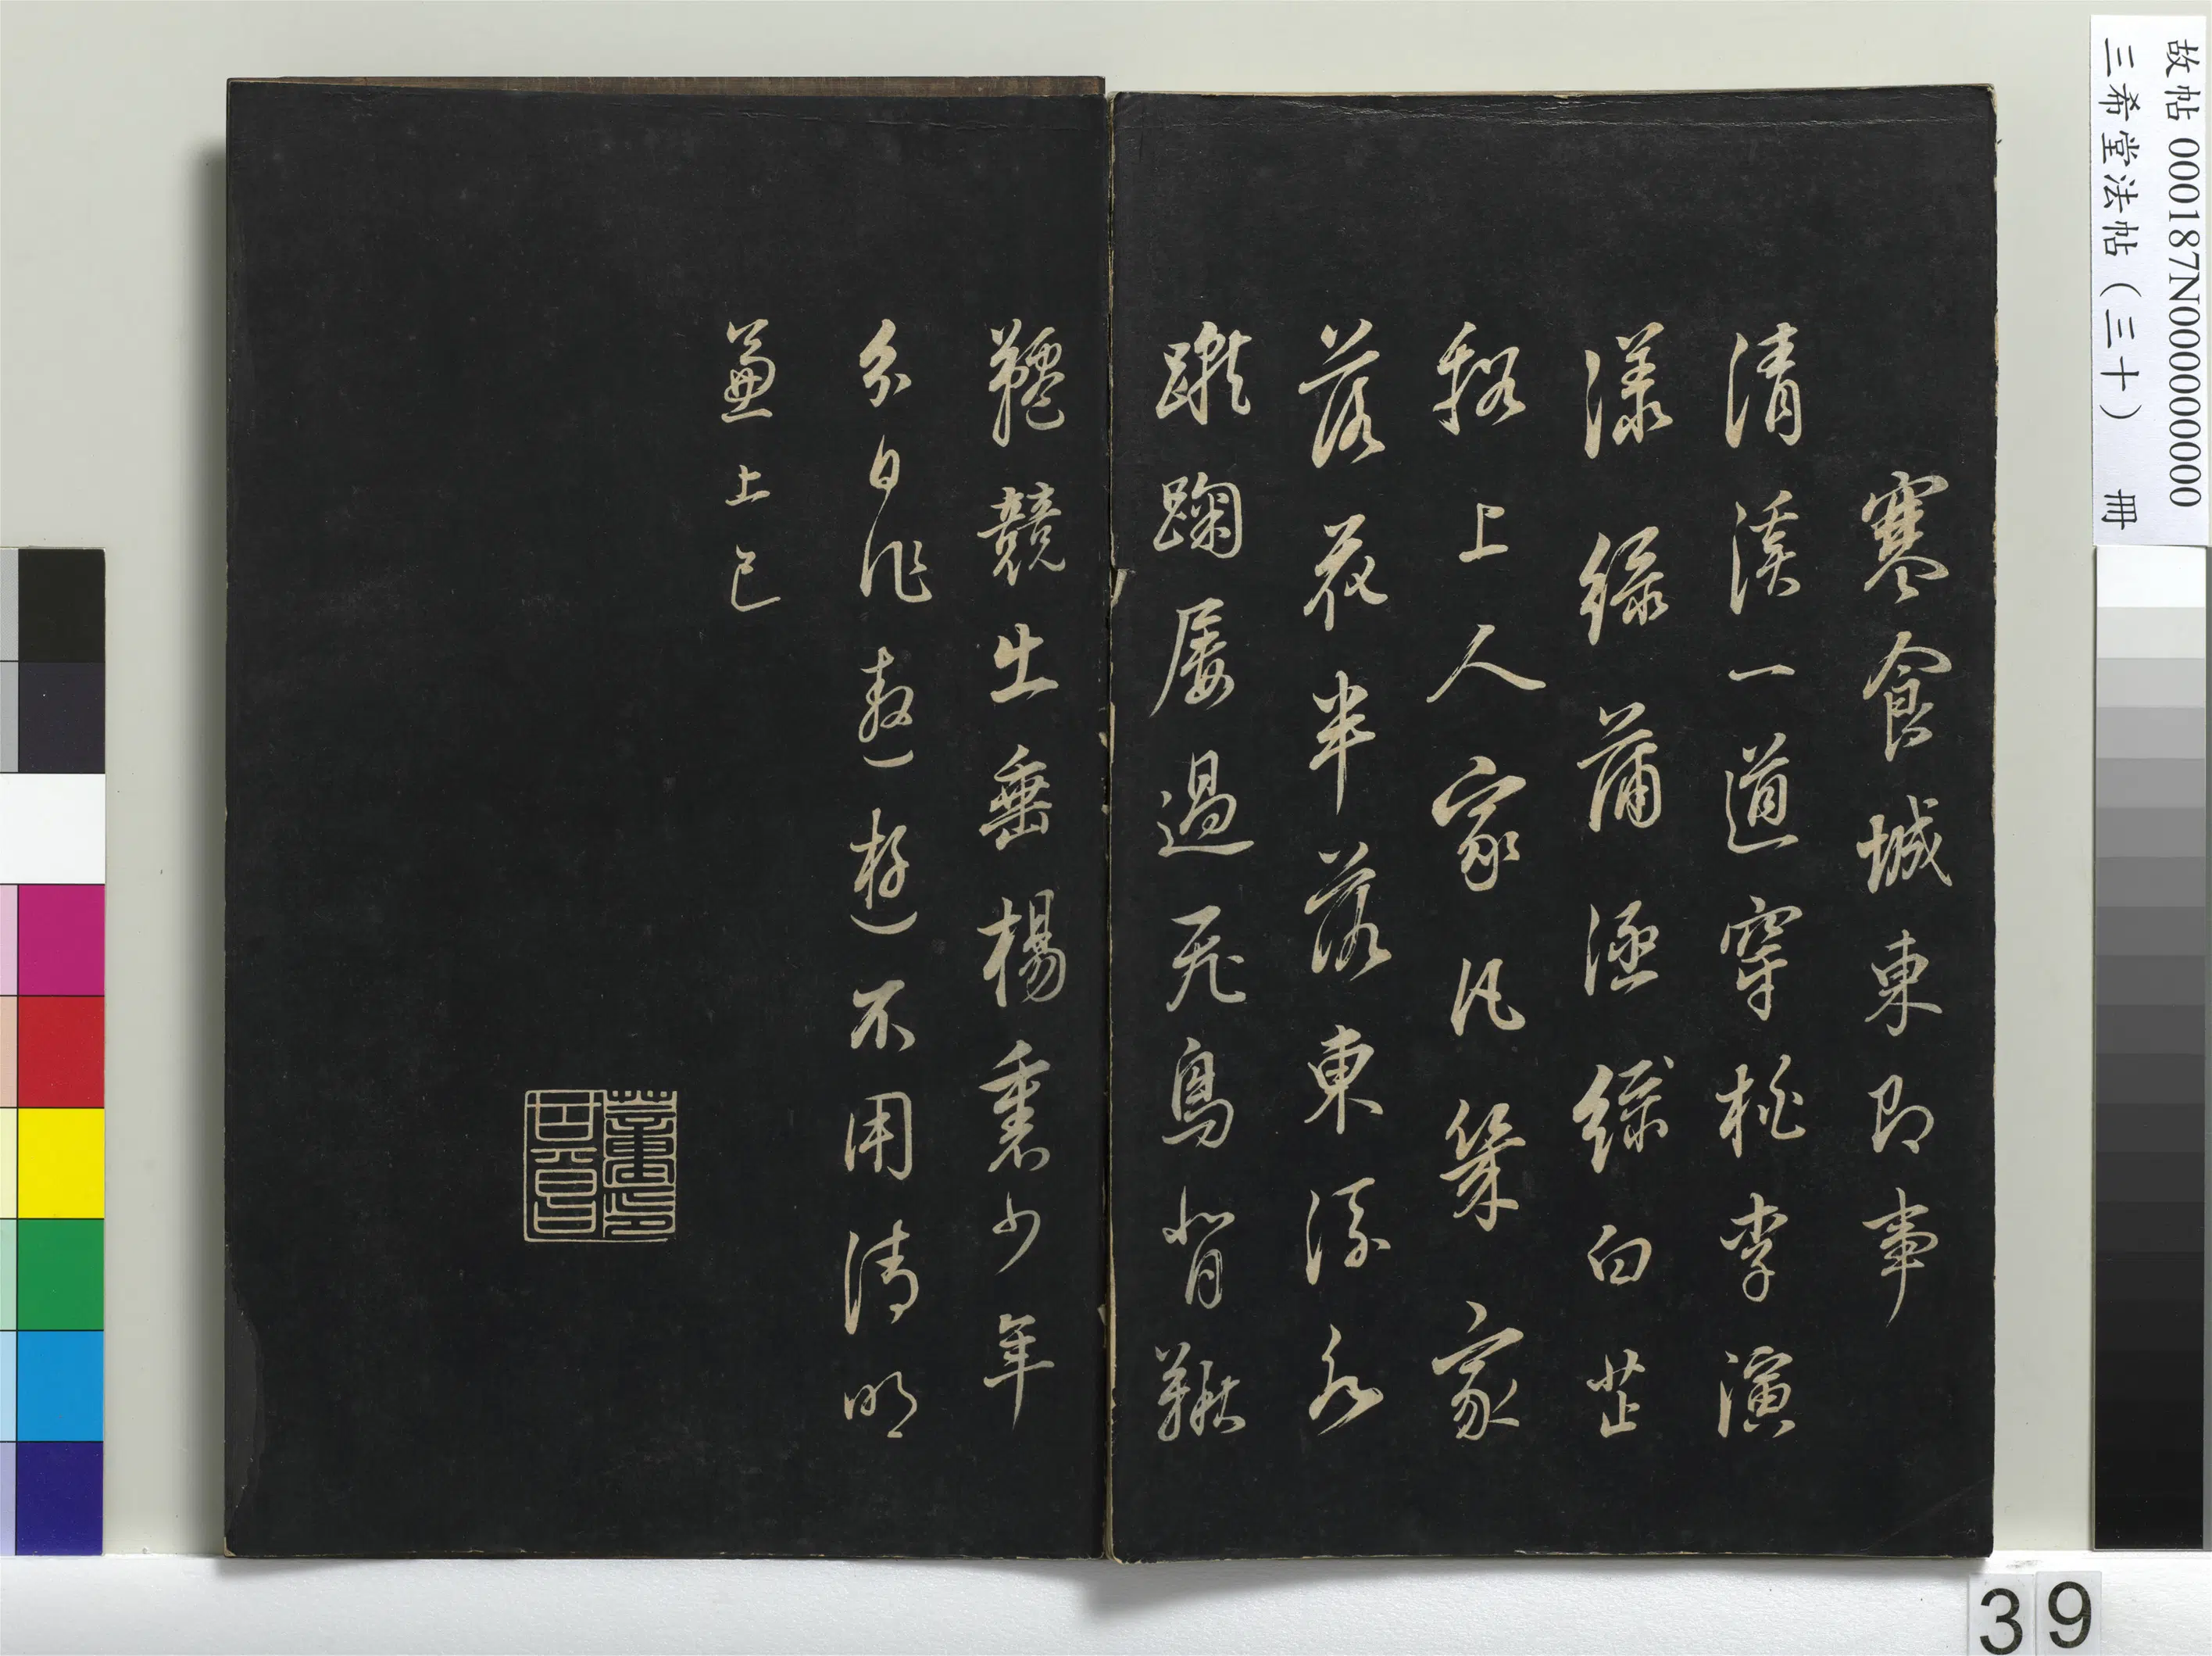 寒食城東即事
清溪一道穿桃李演
漾綠蒲涵綠白芷
谿上人家凡幾家
落花半落東流水
蹴踘屢過飛鳥背鞦
韆競出垂楊裏少年
分日作遨遊不用清明
兼上巳
董其昌印
故帖 000187N000000000
三希堂法帖（三十） 冊
39